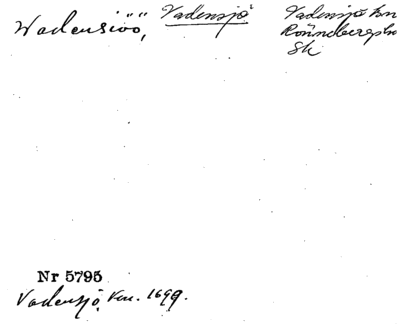 Wadensiöö, Vadensjö Vadensjö sn
Rönnebergs hd
Sk
Nr 5795
Vadensjö, Vin. 1699.